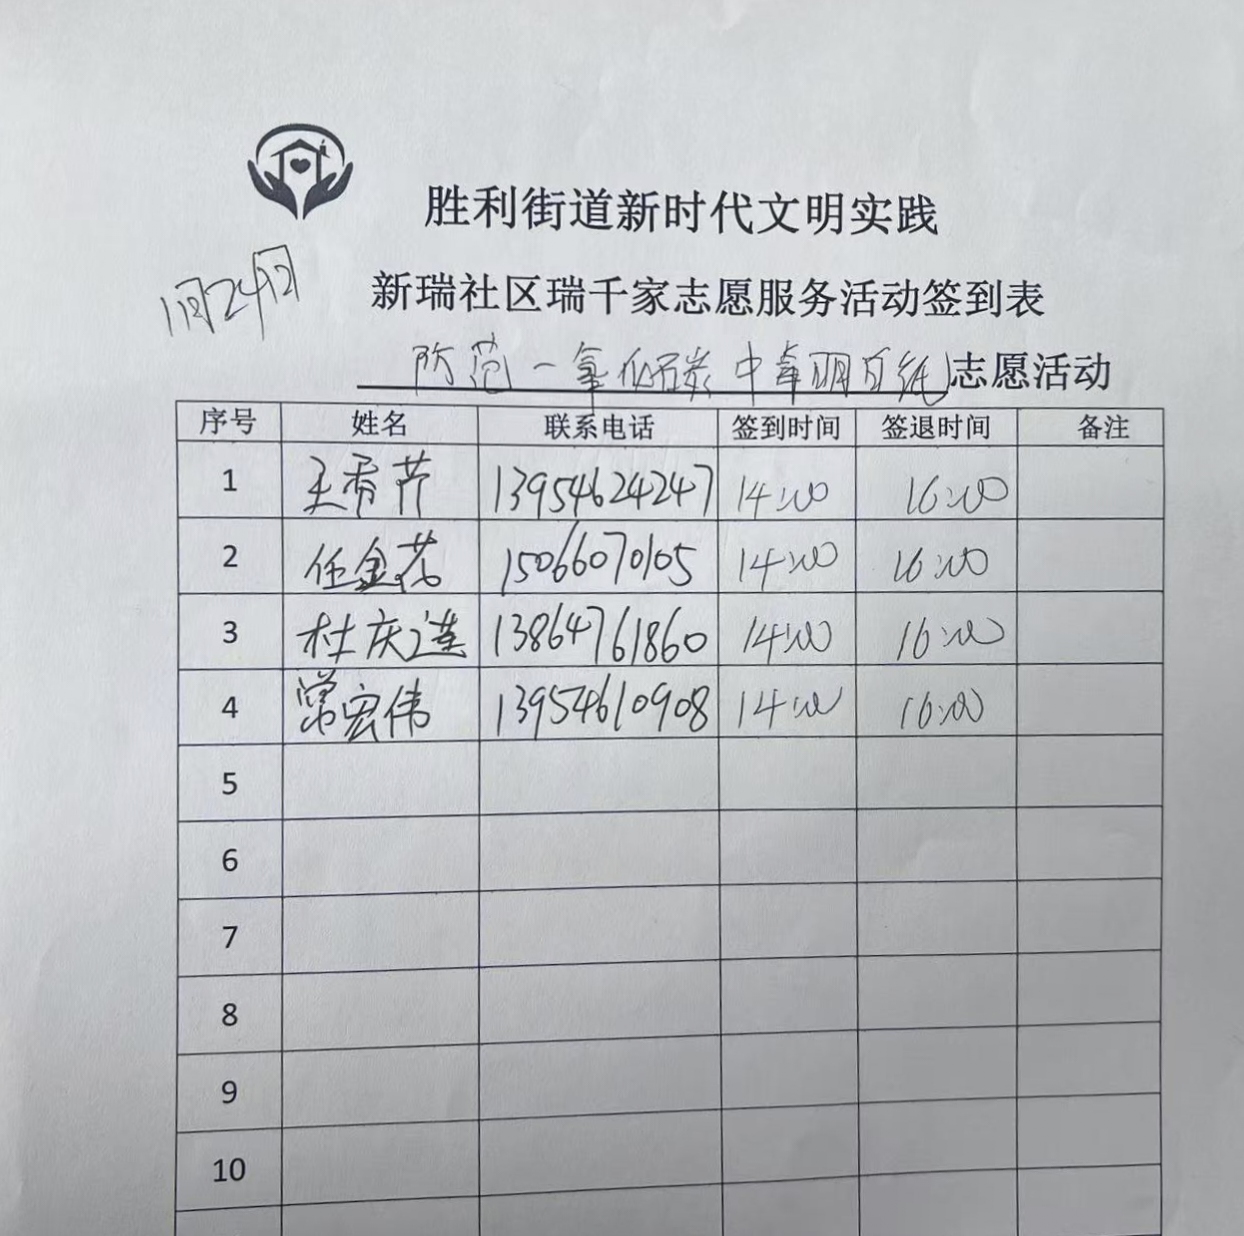 胜利街道新时代文明实践
1月24日
新瑞社区瑞千家志愿服务活动签到表
防范一氧化碳中毒明白纸志愿活动
序号 姓名 联系电话 签到时间 签退时间 备注
1 王秀芹 13954624247 14:00 16:00
2 任金花 15066070105 14:00 16:00
3 杜庆莲 13864761860 14:00 16:00
4 常宏伟 13954610908 14:00 16:00
5
6
7
8
9
10